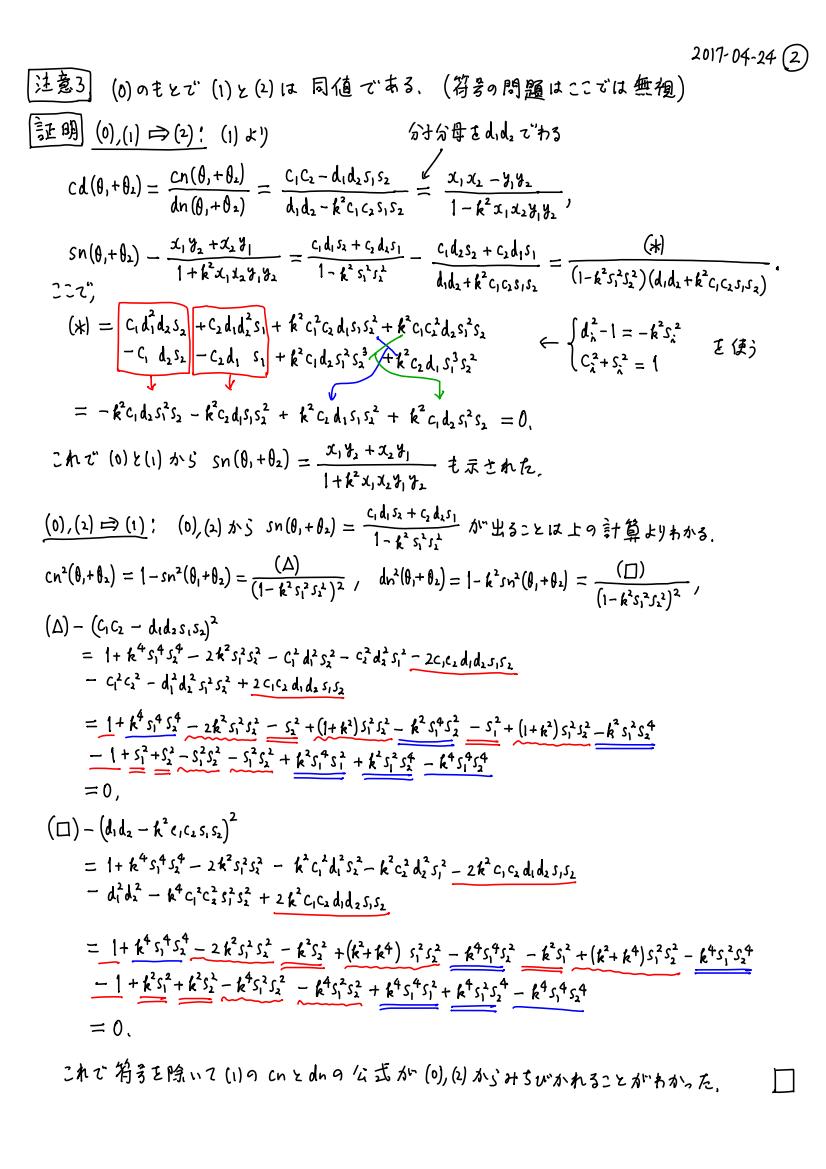 2017-04-24 ②
注意3 (0)のもとで (1)と(2)は 同値である. (符号の問題はここでは無視)
証明 (0),(1) ⇒ (2): (1)より 分子分母をd₁d₂でわる
cd(θ₁+θ₂) = cn(θ₁+θ₂)/dn(θ₁+θ₂) = (c₁c₂ - d₁d₂s₁s₂)/(d₁d₂ - k²c₁c₂s₁s₂) = (x₁x₂ - y₁y₂)/(1 - k²x₁x₂y₁y₂),
sn(θ₁+θ₂) - (x₁y₂ + x₂y₁)/(1 + k²x₁x₂y₁y₂) = (c₁d₁s₂ + c₂d₂s₁)/(1 - k²s₁²s₂²) - (c₁d₂s₂ + c₂d₁s₁)/(d₁d₂ + k²c₁c₂s₁s₂) = (*)/((1 - k²s₁²s₂²)(d₁d₂ + k²c₁c₂s₁s₂)).
ここで,
(*) = c₁d₁²d₂s₂ + c₂d₁d₂²s₁ + k²c₁²c₂d₁s₁s₂² + k²c₁c₂²d₂s₁²s₂
- c₁ d₂s₂ - c₂d₁ s₁ + k²c₁d₂s₁²s₂³ + k²c₂d₁s₁³s₂² ← { dᵢ² - 1 = -k²sᵢ² cᵢ² + sᵢ² = 1 を使う
= -k²c₁d₂s₁²s₂ - k²c₂d₁s₁s₂² + k²c₂d₁s₁s₂² + k²c₁d₂s₁²s₂ = 0.
これで (0)と(1)から sn(θ₁+θ₂) = (x₁y₂ + x₂y₁)/(1 + k²x₁x₂y₁y₂) も示された.
(0),(2) ⇒ (1): (0),(2)から sn(θ₁+θ₂) = (c₁d₁s₂ + c₂d₂s₁)/(1 - k²s₁²s₂²) が出ることは上の計算よりわかる.
cn²(θ₁+θ₂) = 1 - sn²(θ₁+θ₂) = (△)/(1 - k²s₁²s₂²)², dn²(θ₁+θ₂) = 1 - k²sn²(θ₁+θ₂) = (□)/(1 - k²s₁²s₂²)²,
(△) - (c₁c₂ - d₁d₂s₁s₂)²
= 1 + k⁴s₁⁴s₂⁴ - 2k²s₁²s₂² - c₁²d₁²s₂² - c₂²d₂²s₁² - 2c₁c₂d₁d₂s₁s₂
- c₁²c₂² - d₁²d₂²s₁²s₂² + 2c₁c₂d₁d₂s₁s₂
= 1 + k⁴s₁⁴s₂⁴ - 2k²s₁²s₂² - s₂² + (1+k²)s₁²s₂² - k²s₁⁴s₂² - s₁² + (1+k²)s₁²s₂² - k²s₁²s₂⁴
- 1 + s₁² + s₂² - s₁²s₂² - s₁²s₂² + k²s₁⁴s₁² + k²s₁²s₂⁴ - k⁴s₁⁴s₂⁴
= 0,
(□) - (d₁d₂ - k²c₁c₂s₁s₂)²
= 1 + k⁴s₁⁴s₂⁴ - 2k²s₁²s₂² - k²c₁²d₁²s₂² - k²c₂²d₂²s₁² - 2k²c₁c₂d₁d₂s₁s₂
- d₁²d₂² - k⁴c₁²c₂²s₁²s₂² + 2k²c₁c₂d₁d₂s₁s₂
= 1 + k⁴s₁⁴s₂⁴ - 2k²s₁²s₂² - k²s₂² + (k²+k⁴) s₁²s₂² - k⁴s₁⁴s₂² - k²s₁² + (k²+k⁴)s₁²s₂² - k⁴s₁²s₂⁴
- 1 + k²s₁² + k²s₂² - k⁴s₁²s₂² - k⁴s₁²s₂² + k⁴s₁⁴s₁² + k⁴s₁²s₂⁴ - k⁴s₁⁴s₂⁴
= 0.
これで 符号を除いて (1)の cnとdnの 公式が (0),(2)からみちびかれることがわかった. □